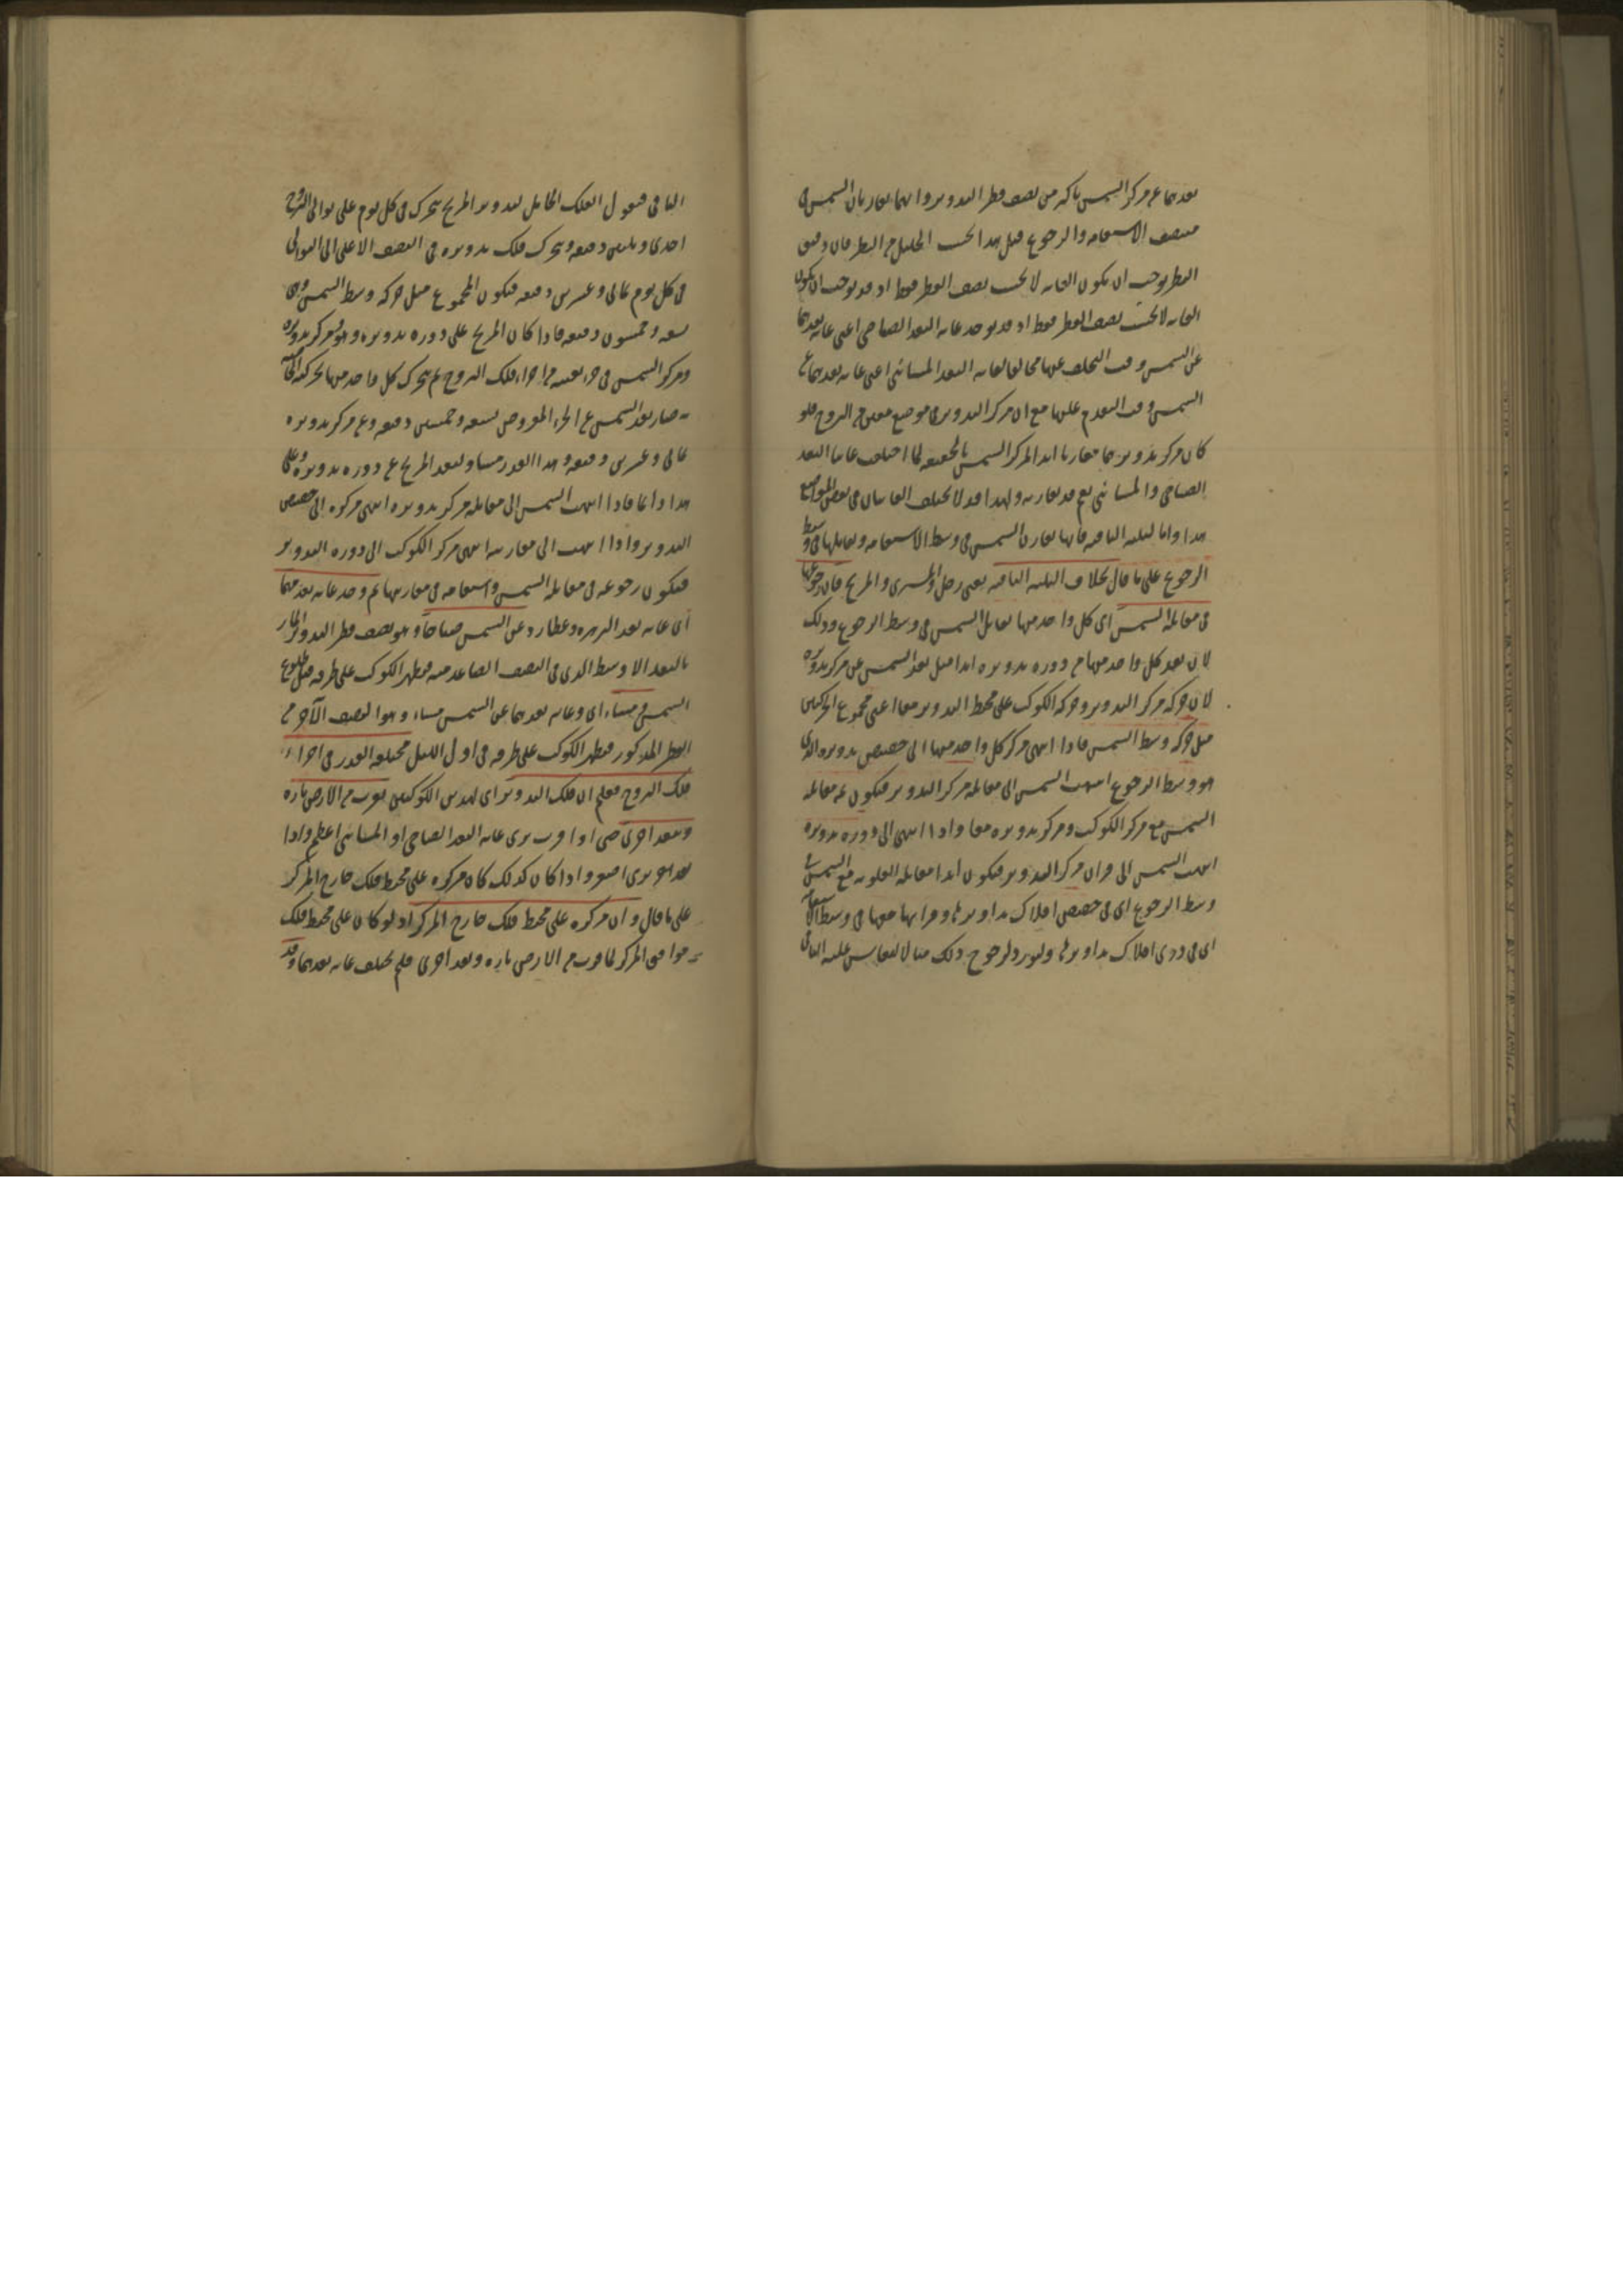 بعدهما عن مركز الشمس باكثر من نصف قطر التدوير وانهما يقاربان الشمس في
منتصف الاستقامة والرجوع قيل هذا بحسب الجليل من النظر فان دقيق
النظر يوجب ان يكون الغاية لا بحسب نصف القطر فقط اذ قد يوجب ان يكون
الغاية لا بحسب نصف القطر فقط اذ قد يوجد غاية البعد الصباحي اعني غاية بعدهما
عن الشمس وقت التخلف عنها مخالفا لغاية البعد المسائي اعني غاية بعدهما عن
الشمس وقت التقدم عليها مع ان مركز التدوير في موضع معين من البروج فلو
كان مركز تدويرهما مقارنا ابدا لمركز الشمس بالحقيقة لما اختلفت غايتا البعد
الصباحي والمسائي نعم قد يقارنه ولهذا قد لا يختلف الغايتان في بعض المواضع
هذا واما الثلثة الباقية فانها يقارن الشمس في وسط الاستقامة ويقابلها في وسط
الرجوع على ما قال بخلاف الثلثة الباقية يعني زحل والمشتري والمريخ فان رجوعها
في مقابلة الشمس اي كل واحد منها يقابل الشمس في وسط الرجوع وذلك
لان بعد كل واحد منها من ذروة تدويره ابدا مثل بعد الشمس عن مركز تدويره
لان حركة مركز التدوير وحركة الكوكب على محيط التدوير معا اعني مجموع الحركتين
مثل حركة وسط الشمس فاذا انتهى مركز كل واحد منها الى حضيض تدويره الذي
هو وسط الرجوع انتهت الشمس الى مقابلة مركز التدوير فيكون ثمه مقابلة
الشمس مع مركز الكوكب ومركز تدويره معا واذا انتهى الى ذروة تدويره
انتهت الشمس الى قران مركز التدوير فيكون ابدا مقابلة العلوية مع الشمس في
وسط الرجوع اي في حضيض افلاك تداويرها وقرانها معها في وسط الاستقامة
اي في ذرى افلاك تداويرها ولنورد لرجوع ذلك مثالا ليقاس عليه الباقي
الباقي فنقول الفلك الحامل لتدوير المريخ يتحرك في كل يوم على توالي البروج
احدى وثلثين دقيقة ويتحرك فلك تدويره في النصف الاعلى الى التوالي
في كل يوم ثماني وعشرين دقيقة فيكون المجموع مثل حركة وسط الشمس وهي
تسعة وخمسون دقيقة فاذا كان المريخ على ذروة تدويره وهو ومركز تدويره
ومركز الشمس في جزء بعينه من اجزاء فلك البروج ثم يتحرك كل واحد منها بحركته الخاصة
به صار بعد الشمس عن الجزء المفروض تسعة وخمسين دقيقة وعن مركز تدويره
ثماني وعشرين دقيقة وهذا القدر مساو لبعد المريخ عن ذروة تدويره وعلى
هذا دائما فاذا انتهت الشمس الى مقابلة مركز تدويره انتهى مركزه الى حضيض
التدوير واذا انتهت الى مقارنته انتهى مركز الكوكب الى ذروة التدوير
فيكون رجوعه في مقابلة الشمس واستقامته في مقارنتها ثم وجد غاية بعدهما
اي غاية بعد الزهرة وعطارد عن الشمس صباحا وهو نصف قطر التدوير المار
بالبعد الاوسط الذي في النصف الصاعد منه فيظهر الكوكب على طرفه قبل طلوع
الشمس ومساء اي وغاية بعدهما عن الشمس مساء وهو النصف الآخر من
القطر المذكور فيظهر الكوكب على طرفه في اول الليل مختلفة القدر في اجزاء
فلك البروج فعلم ان فلك التدوير اي لهذين الكوكبين يقرب من الارض تارة
ويبعد اخرى حتى اذا قرب يرى غاية البعد الصباحي او المسائي اعظم واذا
بعد يرى اصغر واذا كان كذلك كان مركزه على محيط فلك خارج المركز
على ما قال وان مركزه على محيط فلك خارج المركز اذ لو كان على محيط فلك
موافق المركز لما قرب من الارض تارة وبعد اخرى فلم يختلف غاية بعدهما وقد